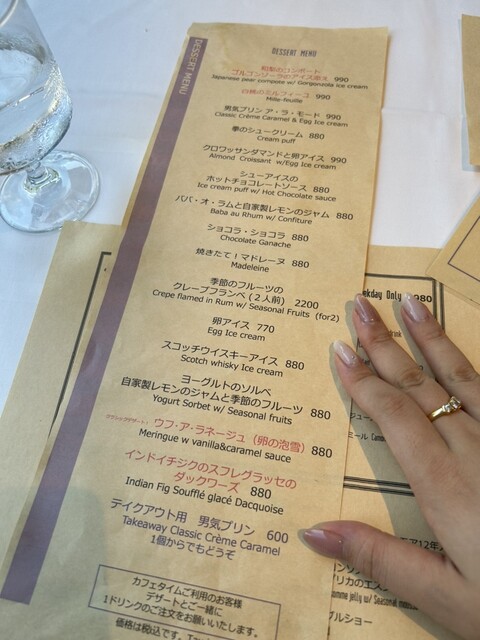 DESSERT MENU
DESSERT MENU
和梨のコンポート
ゴルゴンゾーラのアイス添え 990
Japanese pear compote w/ Gorgonzola ice cream
白桃のミルフィーユ 990
Mille-feuille
男気プリン ア・ラ・モード 990
Classic Crème Caramel & Egg Ice cream
拳のシュークリーム 880
Cream puff
クロワッサンダマンドと卵アイス 990
Almond Croissant w/Egg Ice cream
シューアイスの
ホットチョコレートソース 880
Ice cream puff w/ Hot Chocolate sauce
ババ・オ・ラムと自家製レモンのジャム 880
Baba au Rhum w/ Confiture
ショコラ・ショコラ 880
Chocolate Ganache
焼きたて！マドレーヌ 880
Madeleine
季節のフルーツの
クレープフランベ（２人前） 2200
Crepe flamed in Rum w/ Seasonal Fruits (for2)
卵アイス 770
Egg Ice cream
スコッチウイスキーアイス 880
Scotch whisky Ice cream
ヨーグルトのソルベ
自家製レモンのジャムと季節のフルーツ 880
Yogurt Sorbet w/ Seasonal fruits
ウフ・ア・ラネージュ（卵の泡雪） 880
Meringue w vanilla&caramel sauce
インドイチジクのスフレグラッセの
ダックワーズ 880
Indian Fig Soufflé glacé Dacquoise
テイクアウト用 男気プリン 600
Takeaway Classic Crème Caramel
1個からでもどうぞ
カフェタイムご利用のお客様
デザートとご一緒に
1ドリンクのご注文をお願いいたします。
価格は税込です。
day Only
980
drink